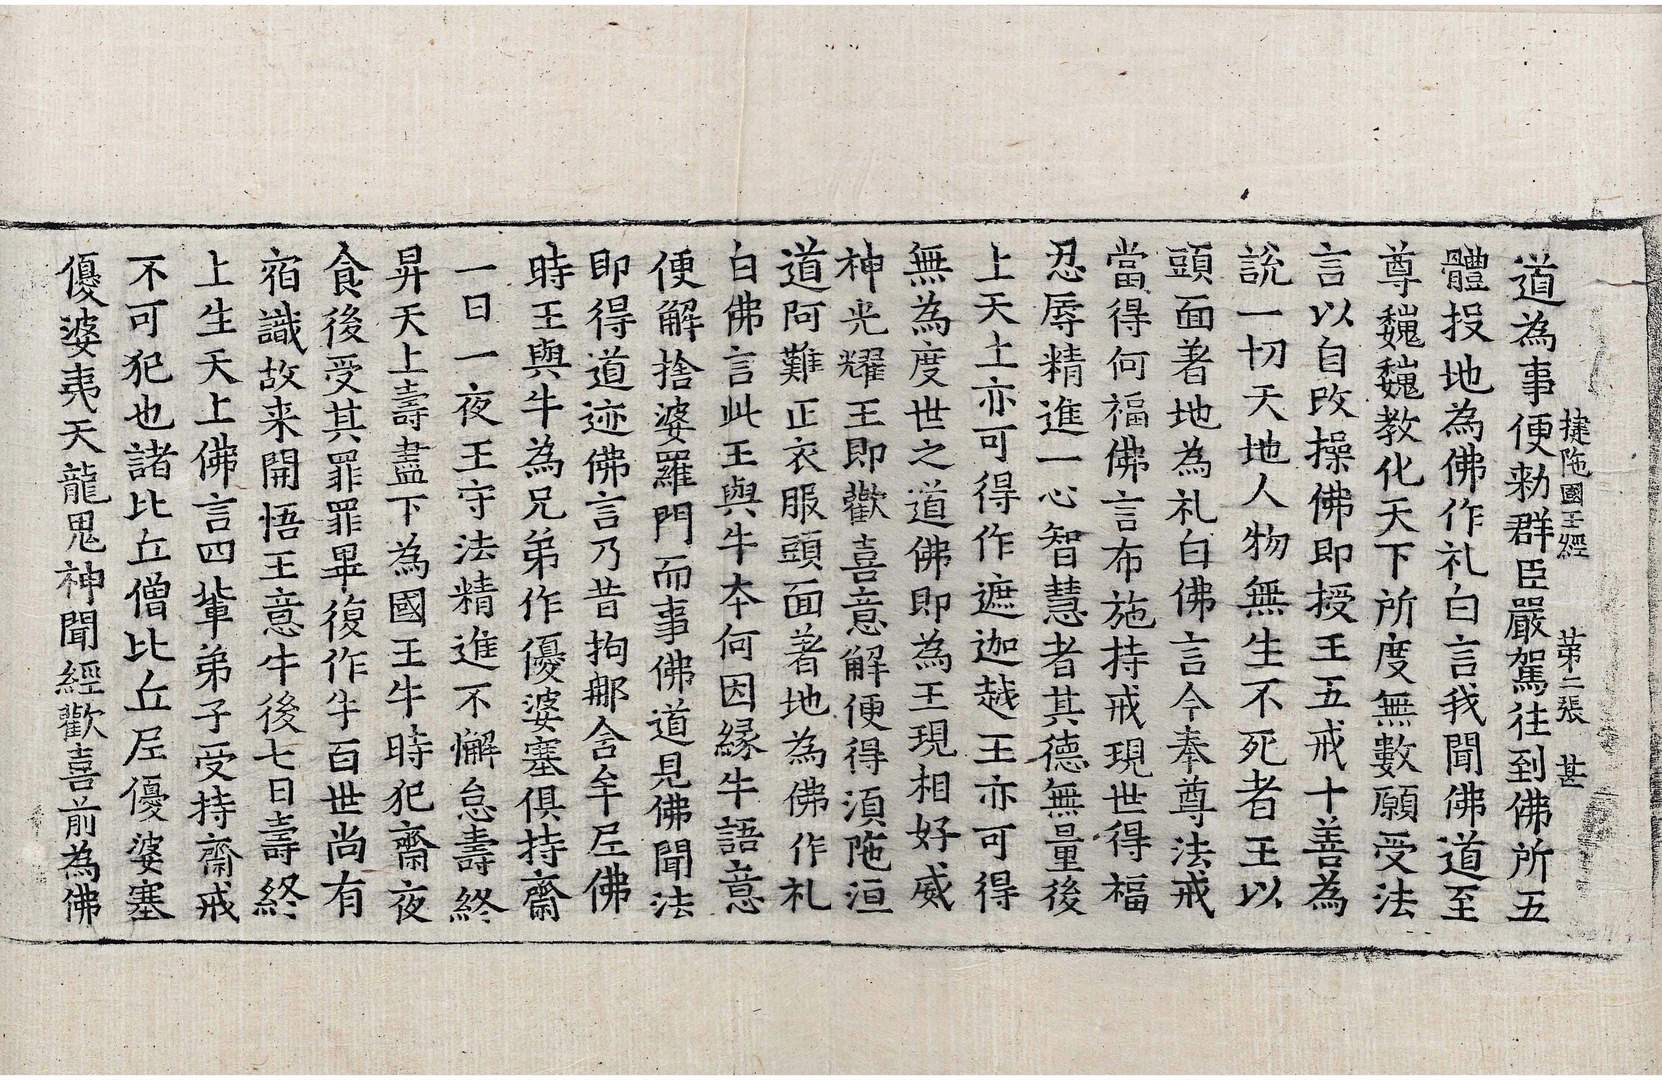 捷陁國王經 第二張 甚
道為事便勑群臣嚴駕往到佛所五
體投地為佛作礼白言我聞佛道至
尊巍巍教化天下所度無數願受法
言以自改操佛即授王五戒十善為
說一切天地人物無生不死者王以
頭面著地為礼白佛言今奉尊法戒
當得何福佛言布施持戒現世得福
忍辱精進一心智慧者其德無量後
上天上亦可得作遮迦越王亦可得
無為度世之道佛即為王現相好威
神光耀王即歡喜意解便得湏陁洹
道阿難正衣服頭面著地為佛作礼
白佛言此王與牛本何因緣牛語意
便解捨婆羅門而事佛道見佛聞法
即得道迹佛言乃昔拘那含牟尼佛
時王與牛為兄弟作優婆塞俱持齋
一日一夜王守法精進不懈怠壽終
昇天上壽盡下為國王牛時犯齋夜
食後受其罪罪畢復作牛百世尚有
宿識故来開悟王意牛後七日壽終
上生天上佛言四輩弟子受持齋戒
不可犯也諸比丘僧比丘尼優婆塞
優婆夷天龍鬼神聞經歡喜前為佛